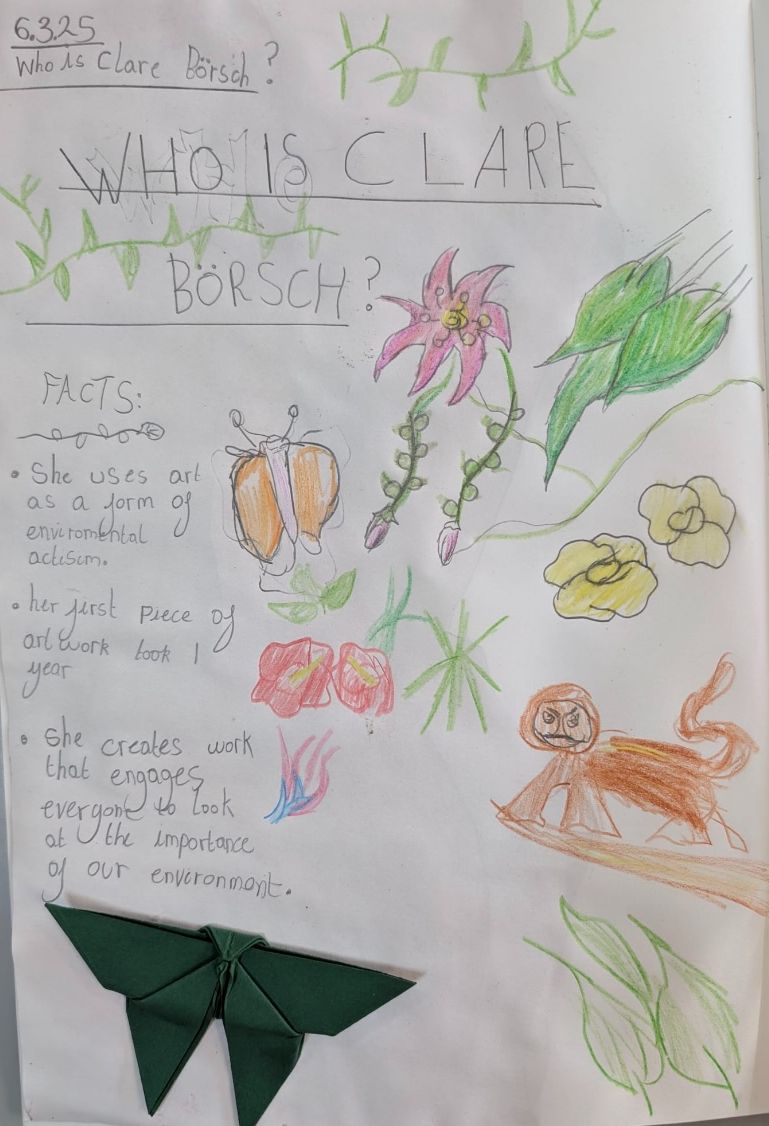 6.3.25
Who is Clare Börsch?
WHO IS CLARE
BÖRSCH?
FACTS:
• She uses art
as a form of
enviromental
actisim.
• her first piece of
art work took 1
year
• She creates work
that engages
everyone to look
at the importance
of our environment.